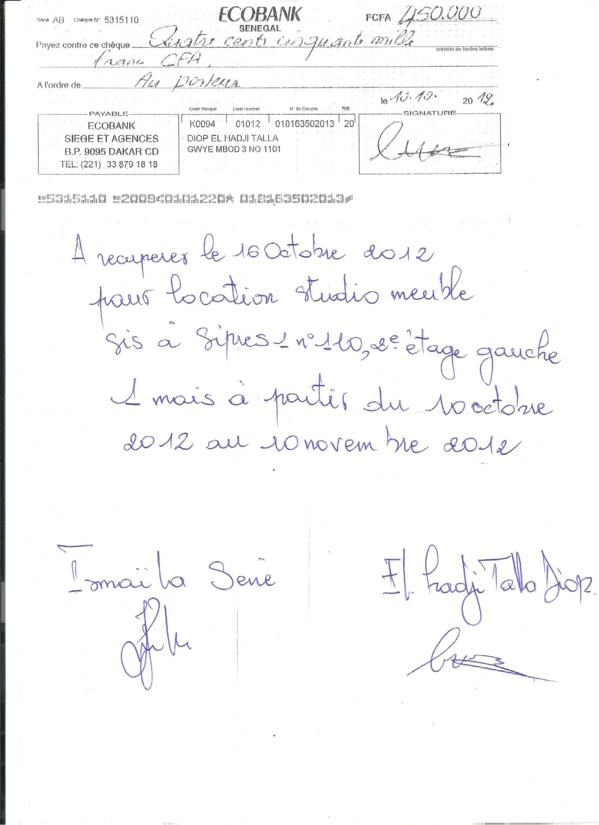 Série AB Chèque N° 5315110
ECOBANK
SENEGAL
FCFA 450.000
Payez contre ce chèque Quatre cents cinquante mille
somme en toutes lettres
franc CFA,
A l'ordre de Au porteur
le 10.10. 2012
PAYABLE
ECOBANK
SIEGE ET AGENCES
B.P. 9095 DAKAR CD
TEL: (221) 33 879 18 18
Code Banque Code Guichet N° de Compte RIB
K0094 01012 018163502013 20
DIOP EL HADJI TALLA
GWYE MBOD 3 NO 1101
SIGNATURE
A recuperer le 16 Octobre 2012
pour location studio meuble
sis à Sipres 1 n° 110, 2e étage gauche
1 mois à partir du 10 octobre
2012 au 10 novembre 2012
Ismaïla Sene
El. hadji Talla Diop.